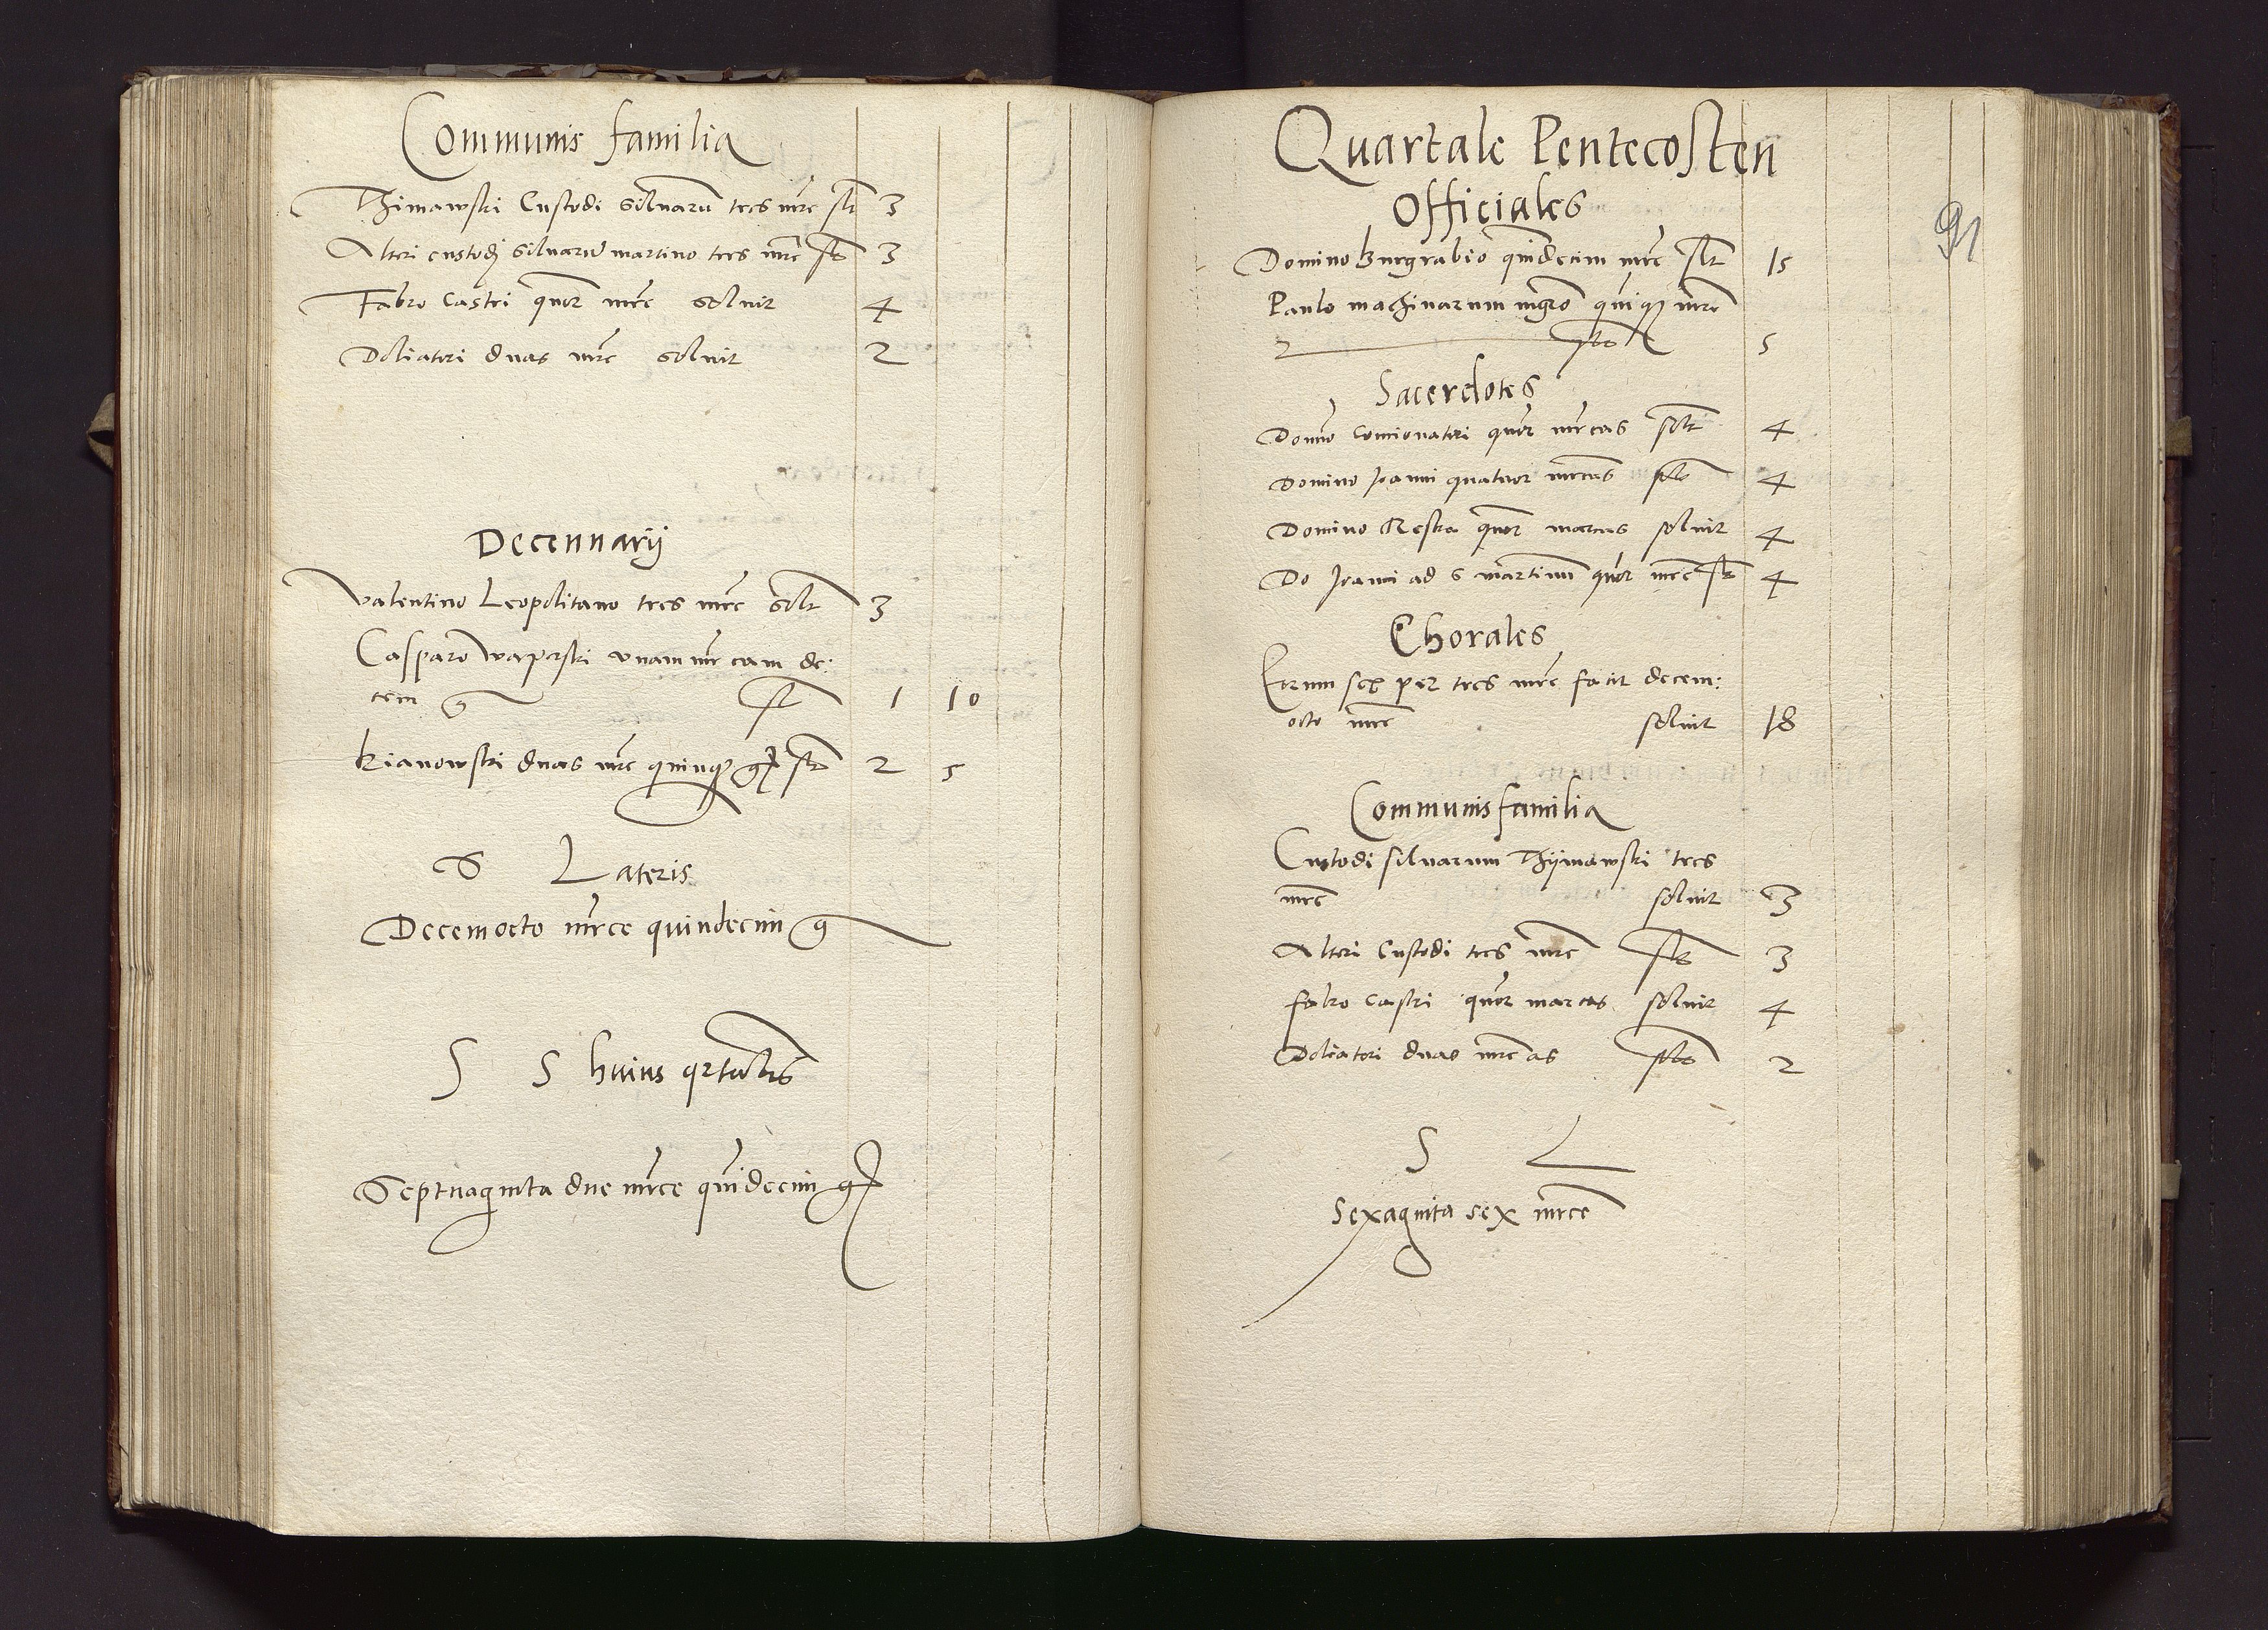 Communis familia
Thimawski Custodi siluarum tres mrc slt 3
Alteri custodi siluarum martino tres mrc slt 3
Fabro Castri quor mrc soluit 4
Doliatori duas mrc soluit 2
Decennarij
Valentino Leopolitano tres mrc solt 3
Casparo unam mrcam de:
cem g slt 1 10
kianowski duas mrc quinque g slt 2 5
S Lateris
Decemocto mrce quindecim g
S S huius qrtalis
Septuaginta due mrce quindecim g
Quartale Pentecosten
Officiales
91
Domino Burgrabio quindecim mrc slt 15
Paulo machinarum mgro quinque mrc
slt 5
Sacerdotes
Domino Concionatori quor mrcas solt 4
Domino Joanni quatuor mrcas slt 4
Domino quor marcas soluit 4
Do Joanni ad S martinum quor mrc slt 4
Chorales
Eorum sex per tres mrc facit decem:
octo mrc soluit 18
Communis familia
Custodi siluarum Thijmawski tres
mrc soluit 3
Alteri Custodi tres mrc slt 3
fabro Castri quor marcas soluit 4
Doliatori duas mrcas slt 2
S L
Sexaginta sex mrce